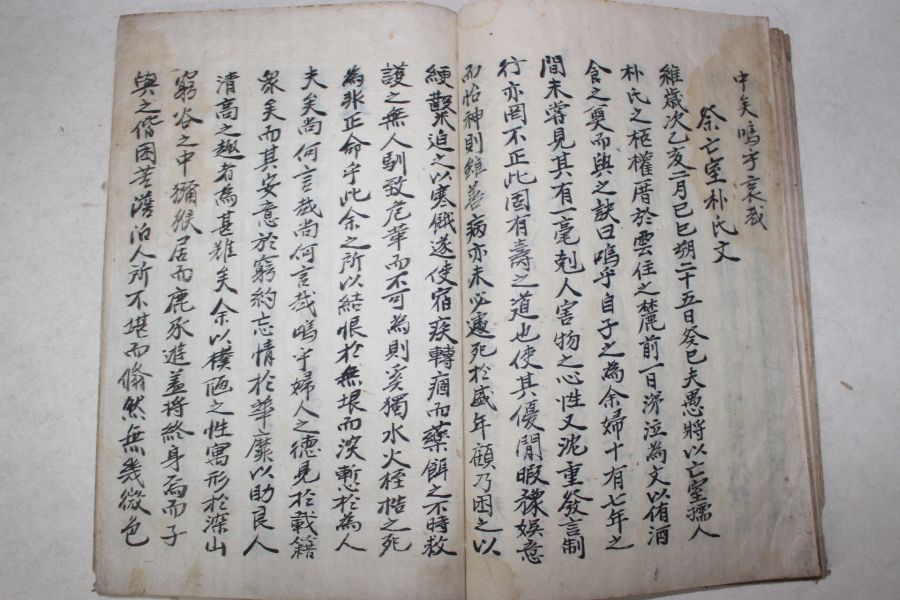 中矣嗚乎哀哉
祭亡室朴氏文
維歲次乙亥二月己巳朔二十五日癸巳夫愚將以亡室孺人
朴氏之柩權厝於雲住之麓前一日涕泣為文以侑酒
食之奠而與之訣曰嗚乎自子之為余婦十有七年之
間未嘗見其有一毫剋人害物之心性又沈重發言制
行亦罔不正此固有壽之道也使其優閒暇豫娛意
而怡神則雖善病亦未必遽死於盛年顧乃困之以
綆繫迫之以寒餓遂使宿疾轉痼而藥餌之不時救
護之無人馴致危革而不可為則奚獨水火桎梏之死
為非正命乎此余之所以結恨於無垠而深慙於為人
夫矣尚何言哉尚何言哉嗚乎婦人之德見於載籍
衆矣而其安意於窮約忘情於華靡以助良人
清高之趣者為甚難矣余以樸陋之性寓形於深山
窮谷之中獼猴居而鹿豕遊蓋將終身焉而子
與之偕困苦澹泊人所不堪而翛然無幾微色